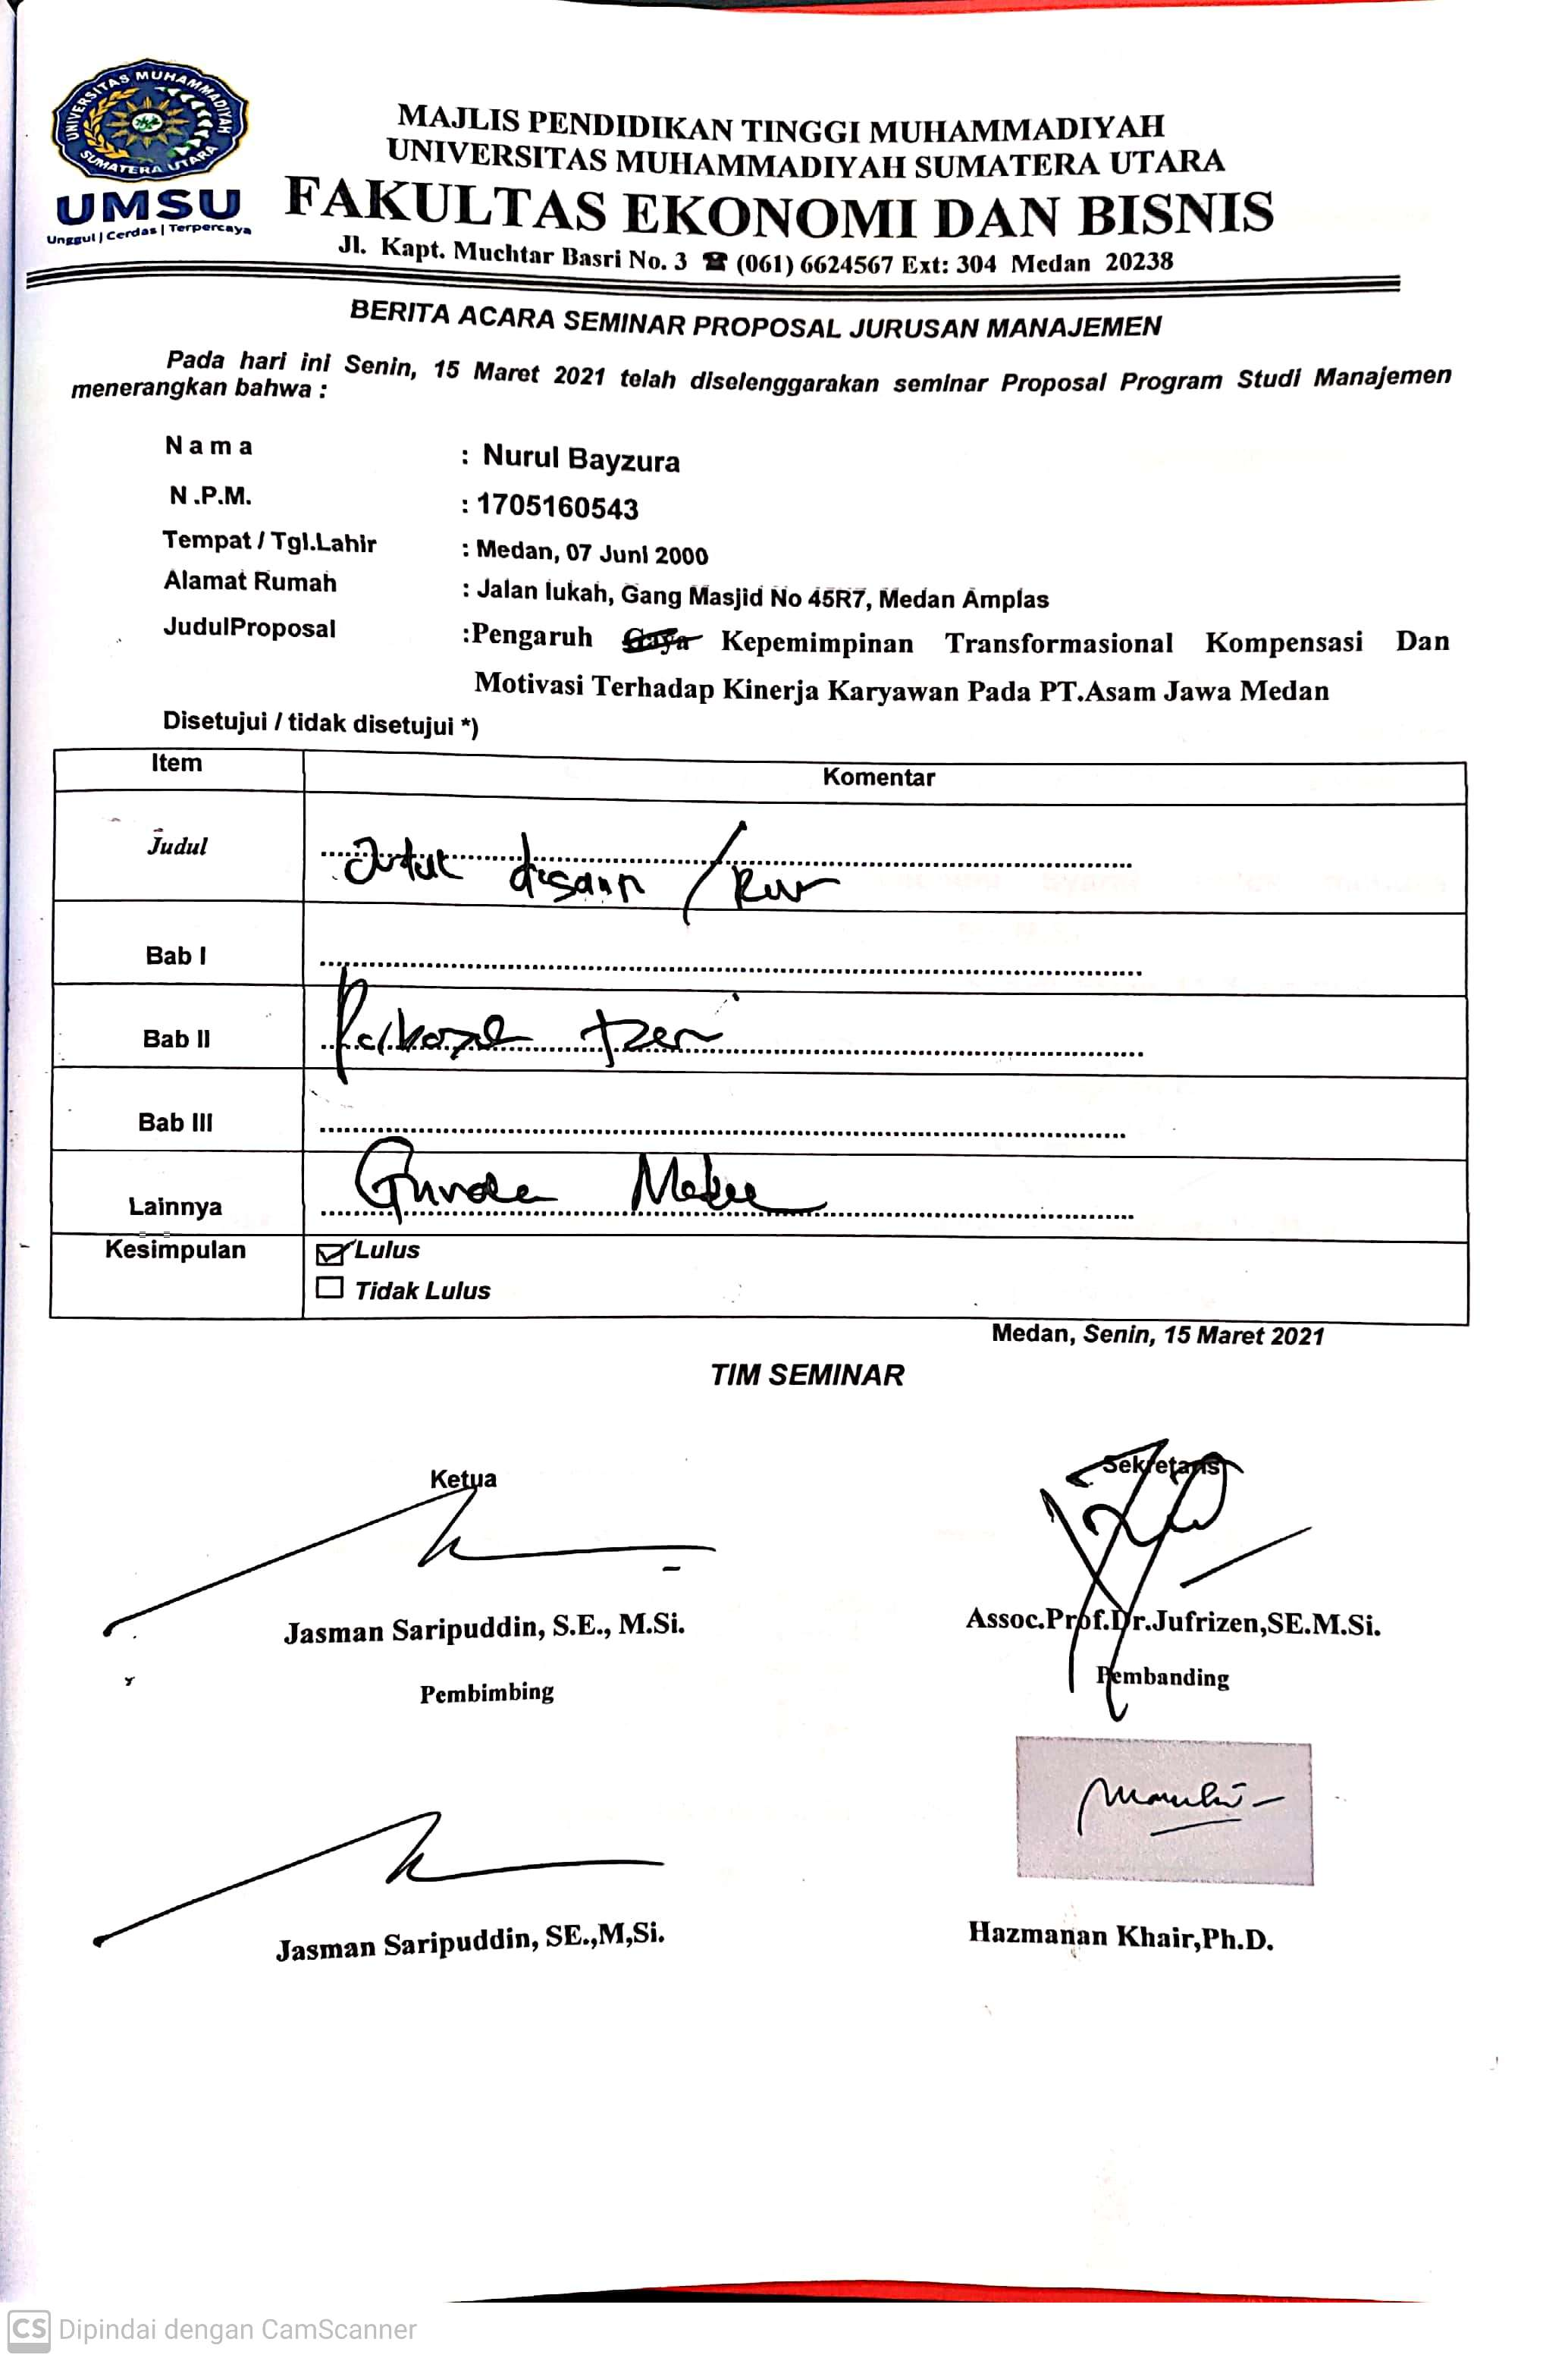 UNIVERSITAS MUHAMMADIYAH
SUMATERA UTARA
UMSU
Unggul | Cerdas | Terpercaya
MAJLIS PENDIDIKAN TINGGI MUHAMMADIYAH
UNIVERSITAS MUHAMMADIYAH SUMATERA UTARA
FAKULTAS EKONOMI DAN BISNIS
Jl. Kapt. Muchtar Basri No. 3 ☎ (061) 6624567 Ext: 304 Medan 20238
BERITA ACARA SEMINAR PROPOSAL JURUSAN MANAJEMEN
Pada hari ini Senin, 15 Maret 2021 telah diselenggarakan seminar Proposal Program Studi Manajemen
menerangkan bahwa :
N a m a : Nurul Bayzura
N .P.M. : 1705160543
Tempat / Tgl.Lahir : Medan, 07 Juni 2000
Alamat Rumah : Jalan lukah, Gang Masjid No 45R7, Medan Amplas
JudulProposal :Pengaruh Gaya Kepemimpinan Transformasional Kompensasi Dan
Motivasi Terhadap Kinerja Karyawan Pada PT.Asam Jawa Medan
Disetujui / tidak disetujui *)
Item Komentar
Judul
Bab I
Bab II
Bab III
Lainnya
Kesimpulan Lulus
Tidak Lulus
Medan, Senin, 15 Maret 2021
TIM SEMINAR
Ketua Sekretaris
Jasman Saripuddin, S.E., M.Si. Assoc.Prof.Dr.Jufrizen,SE.M.Si.
Pembimbing Pembanding
Jasman Saripuddin, SE.,M,Si. Hazmanan Khair,Ph.D.
CS Dipindai dengan CamScanner